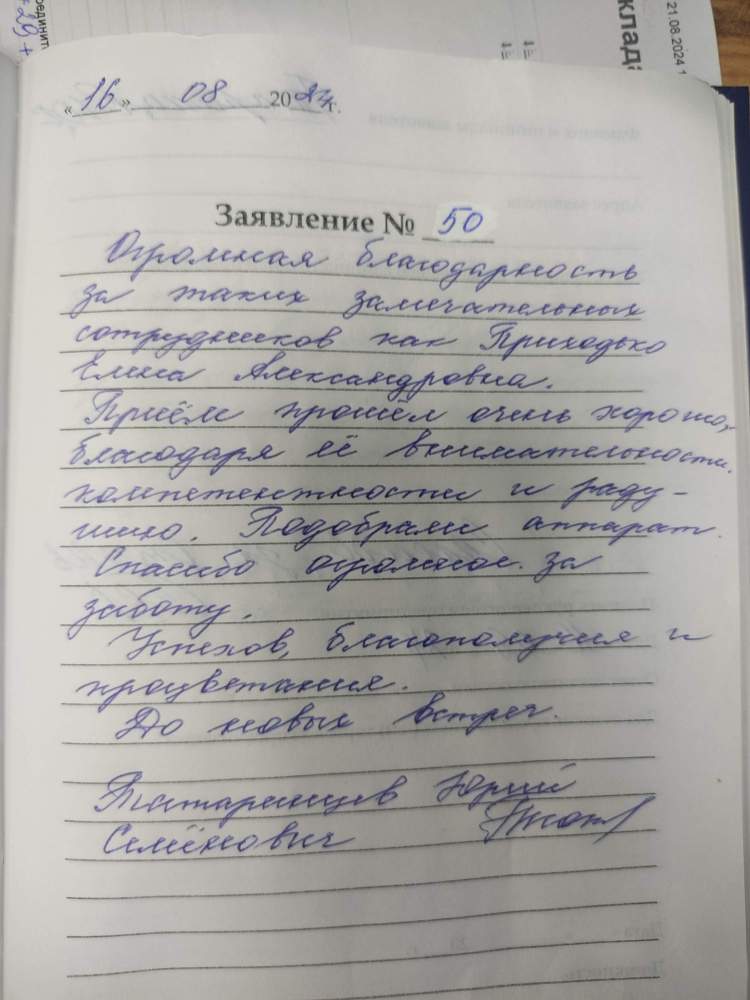 21.08.2024 1
клада
«16» 08 2024г.
Заявление № 50
Огромная благодарность
за таких замечательных
сотрудников как Приходько
Елена Александровна.
Приём прошёл очень хорошо,
благодаря её внимательности,
компетентности и раду-
шию. Подобрали аппарат.
Спасибо огромное за
заботу.
Успехов, благополучия и
процветания.
До новых встреч.
Татаринцев Юрий
Семёнович